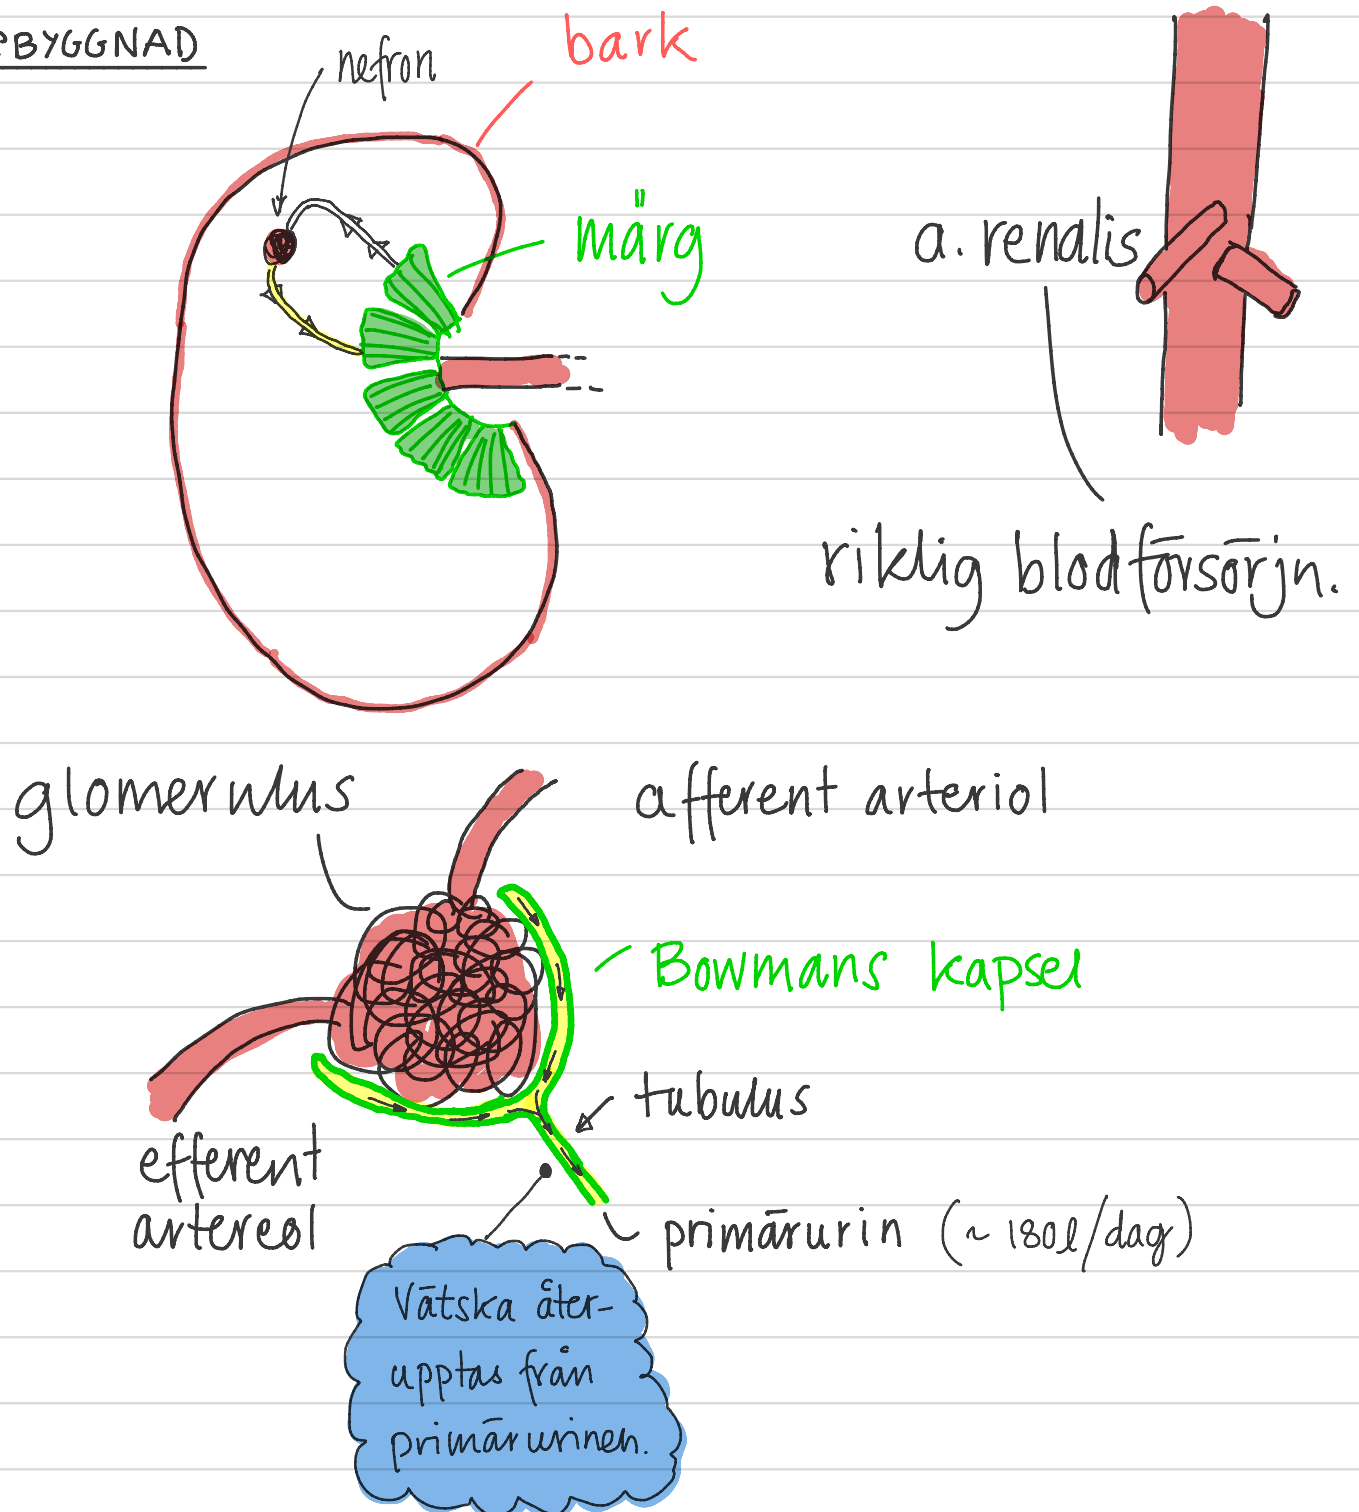 BYGGNAD
nefron
bark
märg
a. renalis
riklig blodförsörjn.
glomerulus
afferent arteriol
Bowmans kapsel
tubulus
efferent
artereol
primärurin (~ 180l/dag)
Vätska åter-
upptas från
primärurinen.